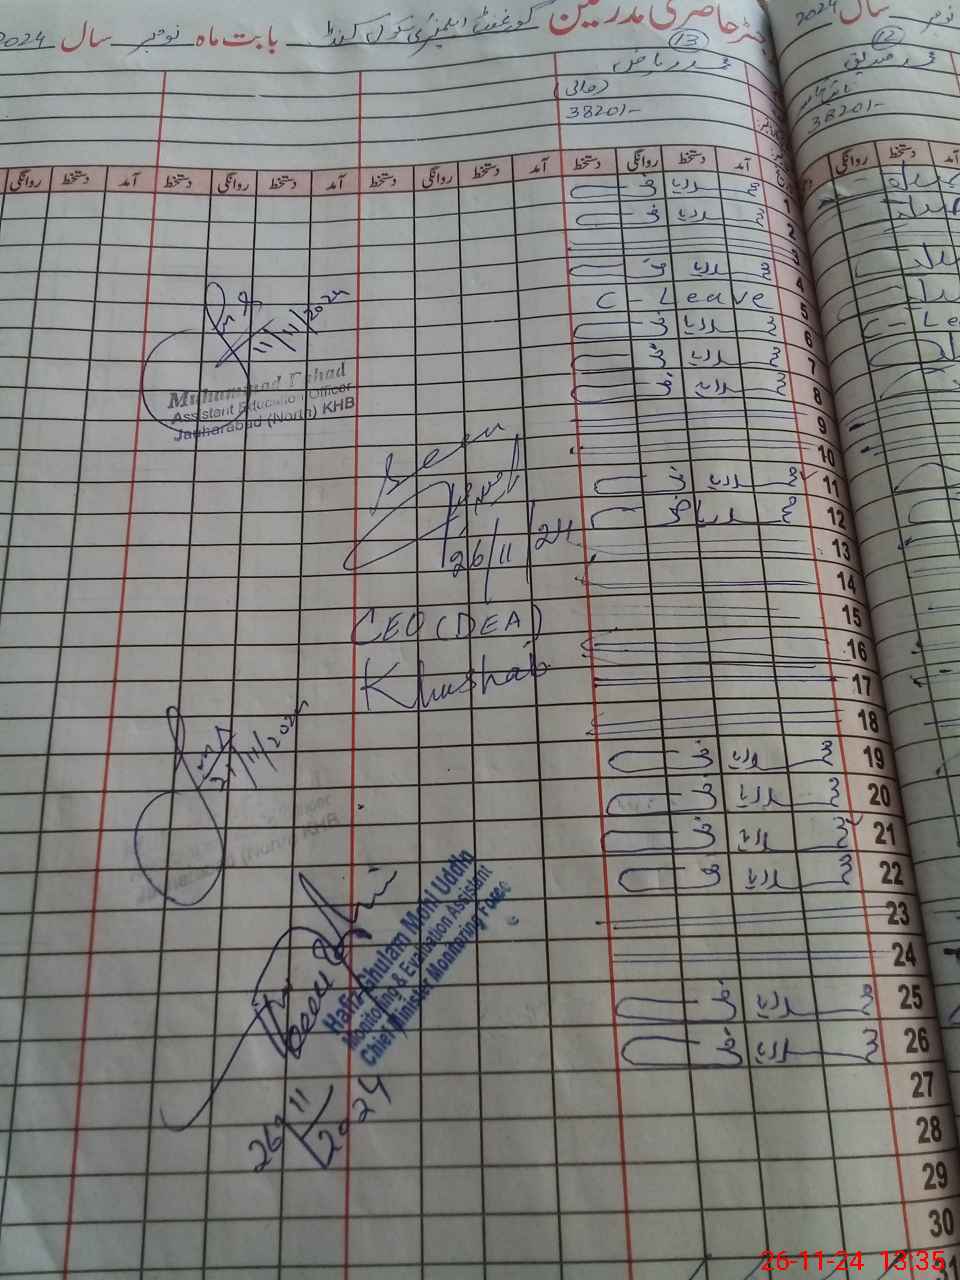 رجسٹر حاضری مدرسین گورنمنٹ ایلیمنٹری سکول بابت ماہ نومبر سال 2024
سال 2024
13
12
محمد ریاض
محمد صدیق
(مالی)
38201-
38201-
آمد دستخط روانگی دستخط آمد دستخط روانگی دستخط آمد دستخط روانگی دستخط آمد دستخط روانگی
1 م ریاض
2 م ریاض
3
4 م ریاض
5 C-Leave
6 م ریاض
7 م ریاض
8 م ریاض
9
10
11 م ریاض
12 م ریاض
13
14
15
16
17
18
19 م ریاض
20 م ریاض
21 م ریاض
22 م ریاض
23
24
25 م ریاض
26 م ریاض
27
28
29
30
31
11/11/2024
Muhammad Fahad
Assistant Education Officer
Jauharabad (North) KHB
Seen
26/11/24
CEO (DEA)
Khushab
21/11/2024
Hafiz Ghulam Mohi Uddin
Monitoring & Evaluation Assistant
Chief Minister Monitoring Fosec
26/11
2024
26-11-24 13:35